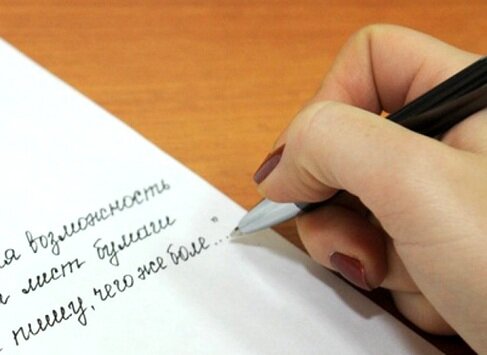 я возможность
лист бумаги
пишу, чего же боле..."